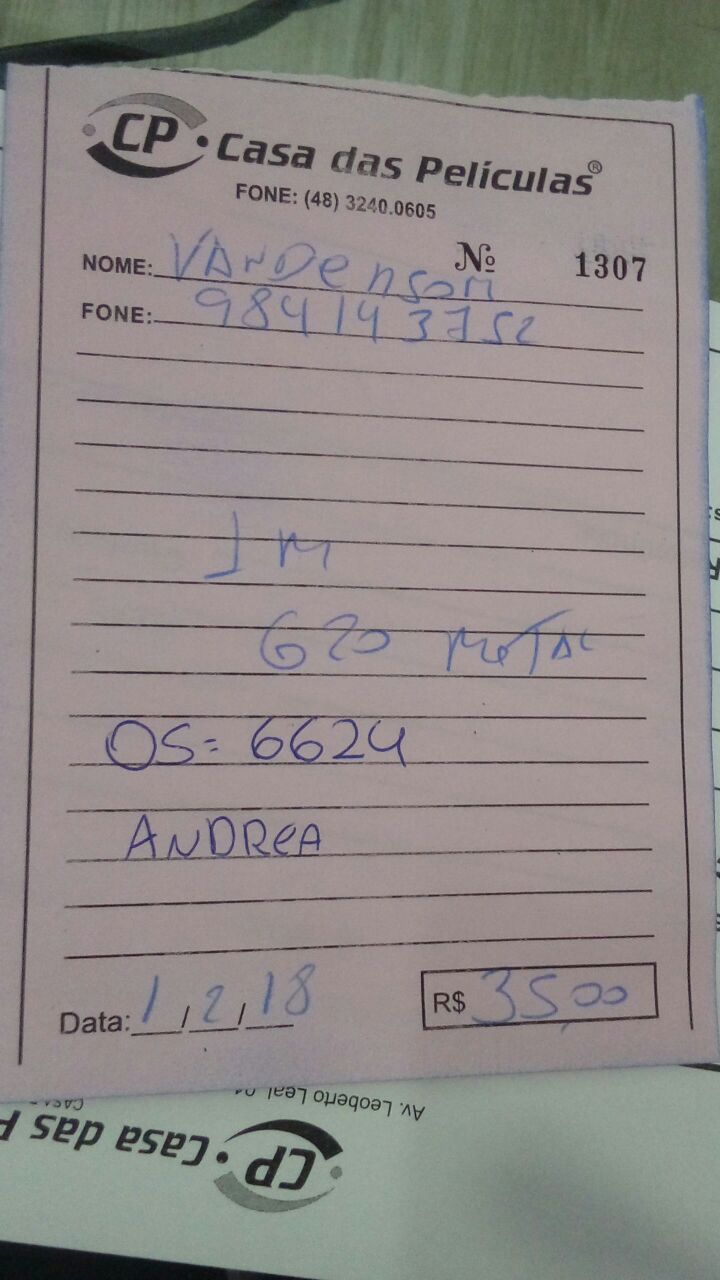 CP • Casa das Películas®
FONE: (48) 3240.0605
NOME: VANDENSOM Nº 1307
FONE: 984143752
1 M
G20 METAL
OS= 6624
ANDREA
Data: 1/2/18 R$ 35,00
Av. Leoberto Leal
CP • Casa das P